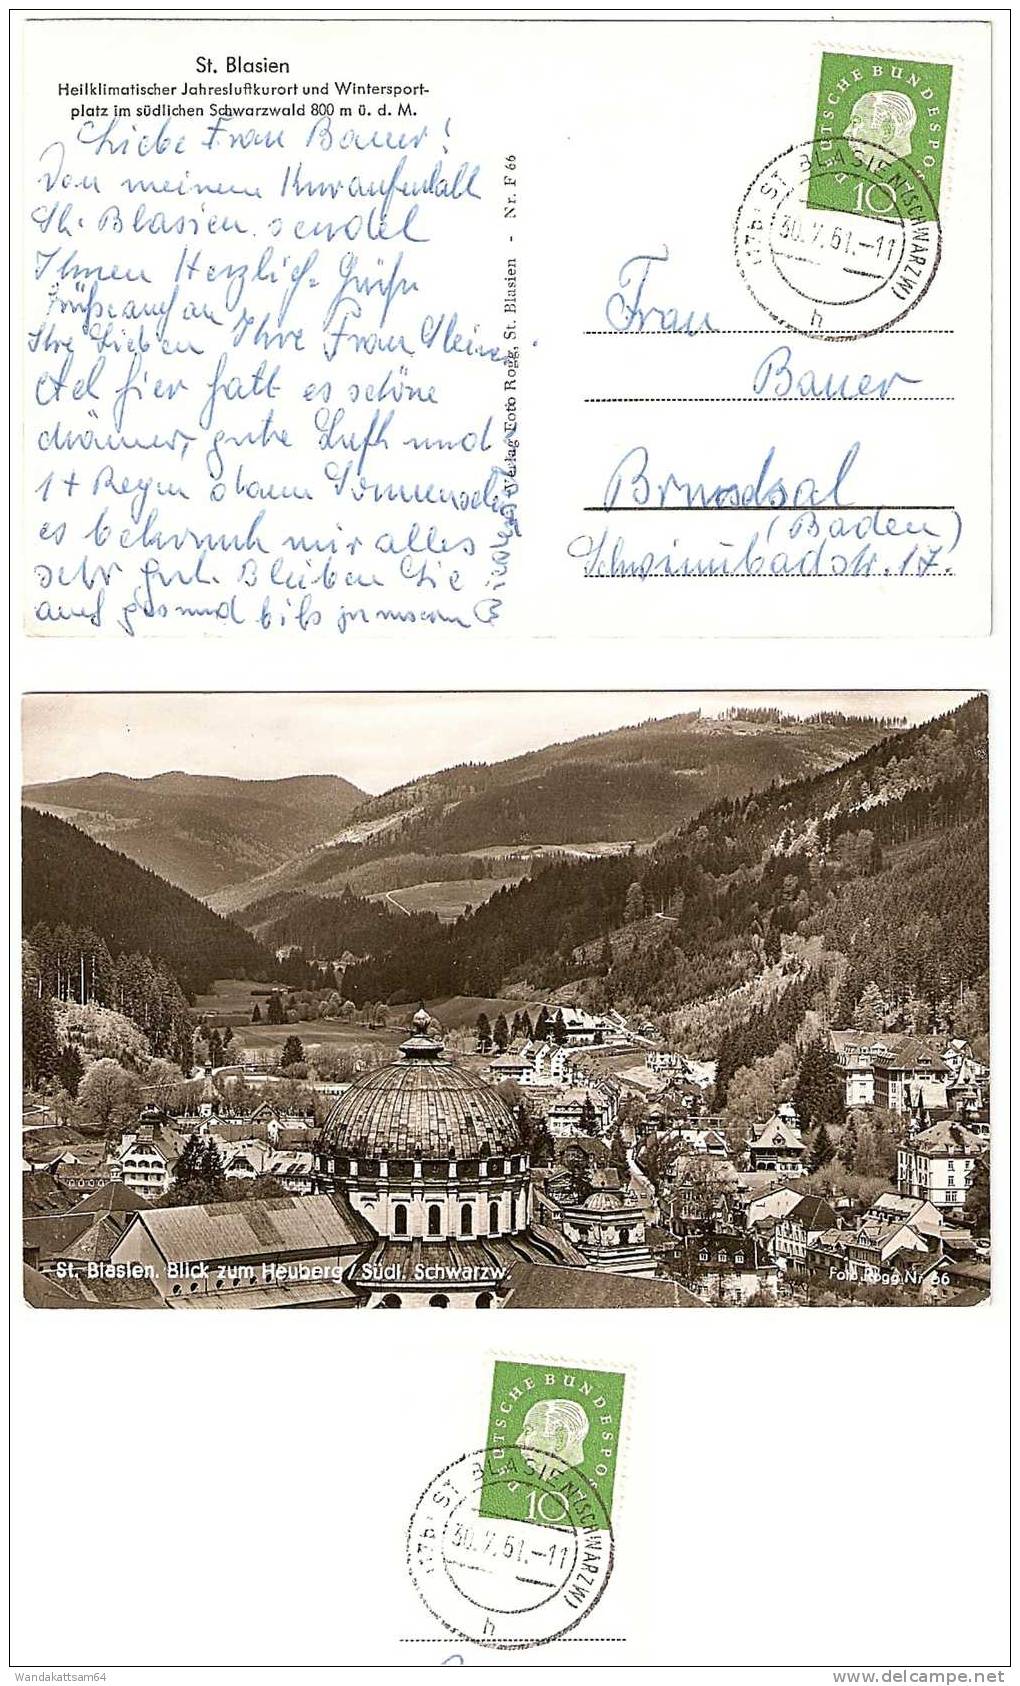 St. Blasien
Heilklimatischer Jahresluftkurort und Wintersport-
platz im südlichen Schwarzwald 800 m ü. d. M.
Liebe Frau Bauer!
Von meinem Kuraufenthalt
St. Blasien sendet
Ihnen Herzlich. Grüße
Grüße auch an
Ihre Lieben Ihre Frau
hier hatt es schöne
gute Luft und
Regen
es bekommt mir alles
sehr gut. Bleiben Sie
auch gesund bis zu unserem
Verlag Foto Rogg, St. Blasien - Nr. F 66
DEUTSCHE BUNDESPOST
10
(17b) ST. BLASIEN (SCHWARZW)
30.7.61.-11
h
Frau
Bauer
Bruchsal
(Baden)
Schwimmbadstr. 17.
St. Blasien. Blick zum Heuberg / Südl. Schwarzw.
Foto Rogg Nr. 66
DEUTSCHE BUNDESPOST
10
(17b) ST. BLASIEN (SCHWARZW)
30.7.61.-11
h
Wandakattsam64
delcampe.net